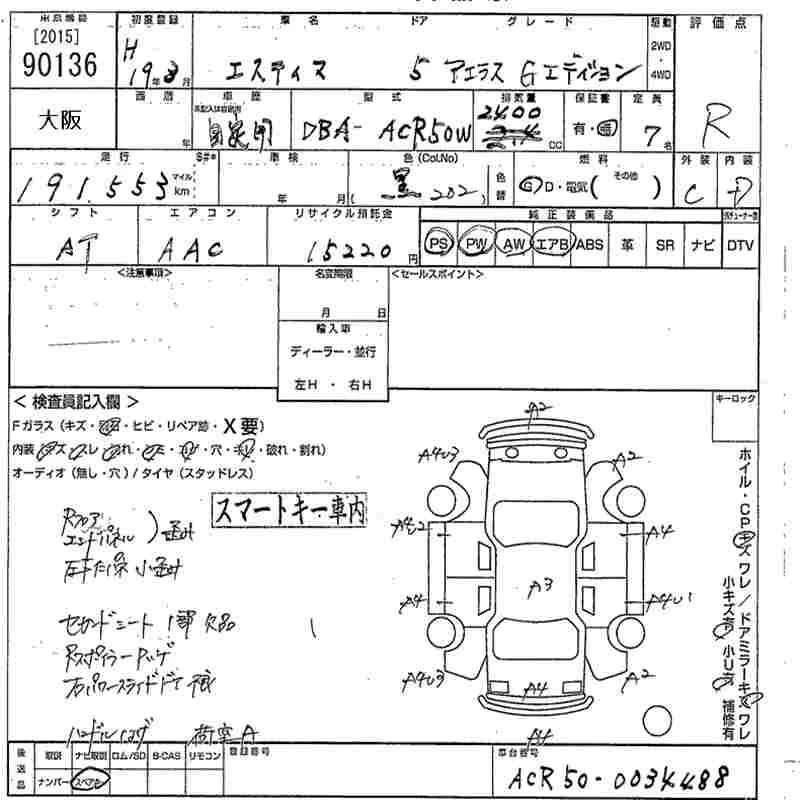 東京番号 初度登録 車名 ドア グレード 駆動 評価点
[2015]
90136
H 19年8月 エスティマ 5 アエラス Gエディション 2WD・4WD
R
西暦 車歴 型式 排気量 保証書 定員
大阪 年 自家用 DBA- ACR50W 2400 CC 有・無 7名
走行 S#* 車検 色(Col.No) 燃料 外装 内装
191,553 マイル km 年 月 黒 202 色替 G D・電気( その他 ) C D
シフト エアコン リサイクル預託金 純正装備品
AT AAC 15220円 PS PW AW エアB ABS 革 SR ナビ DTV
<注意事項> 名変期限 <セールスポイント>
月 日
輸入車
ディーラー・並行
左H・右H
キーロック
<検査員記入欄>
Fガラス(キズ・・ヒビ・リペア跡・X要)
内装 ・穴・・破れ・割れ)
オーディオ(無し・穴)/タイヤ(スタッドレス)
スマートキー車内
Rフロア
エンドパネル )歪み
小歪み
セカンドシート 1部欠品
Rスポイラー
右パワースライドドア
ハンドルハゲ 荷室A
A2
A4U3 A2
A4
A3
A4 A4U1
A4U3 A2
A4
A4
ホイル・CPキズ ワレ/ドアミラーキズ ワレ
小キズ有 小U有 補修有
後送品 取説 ナビ取説 ロム/SD B-CAS リモコン 登録番号 車台番号
ナンバー スペアキー ACR50-0034488